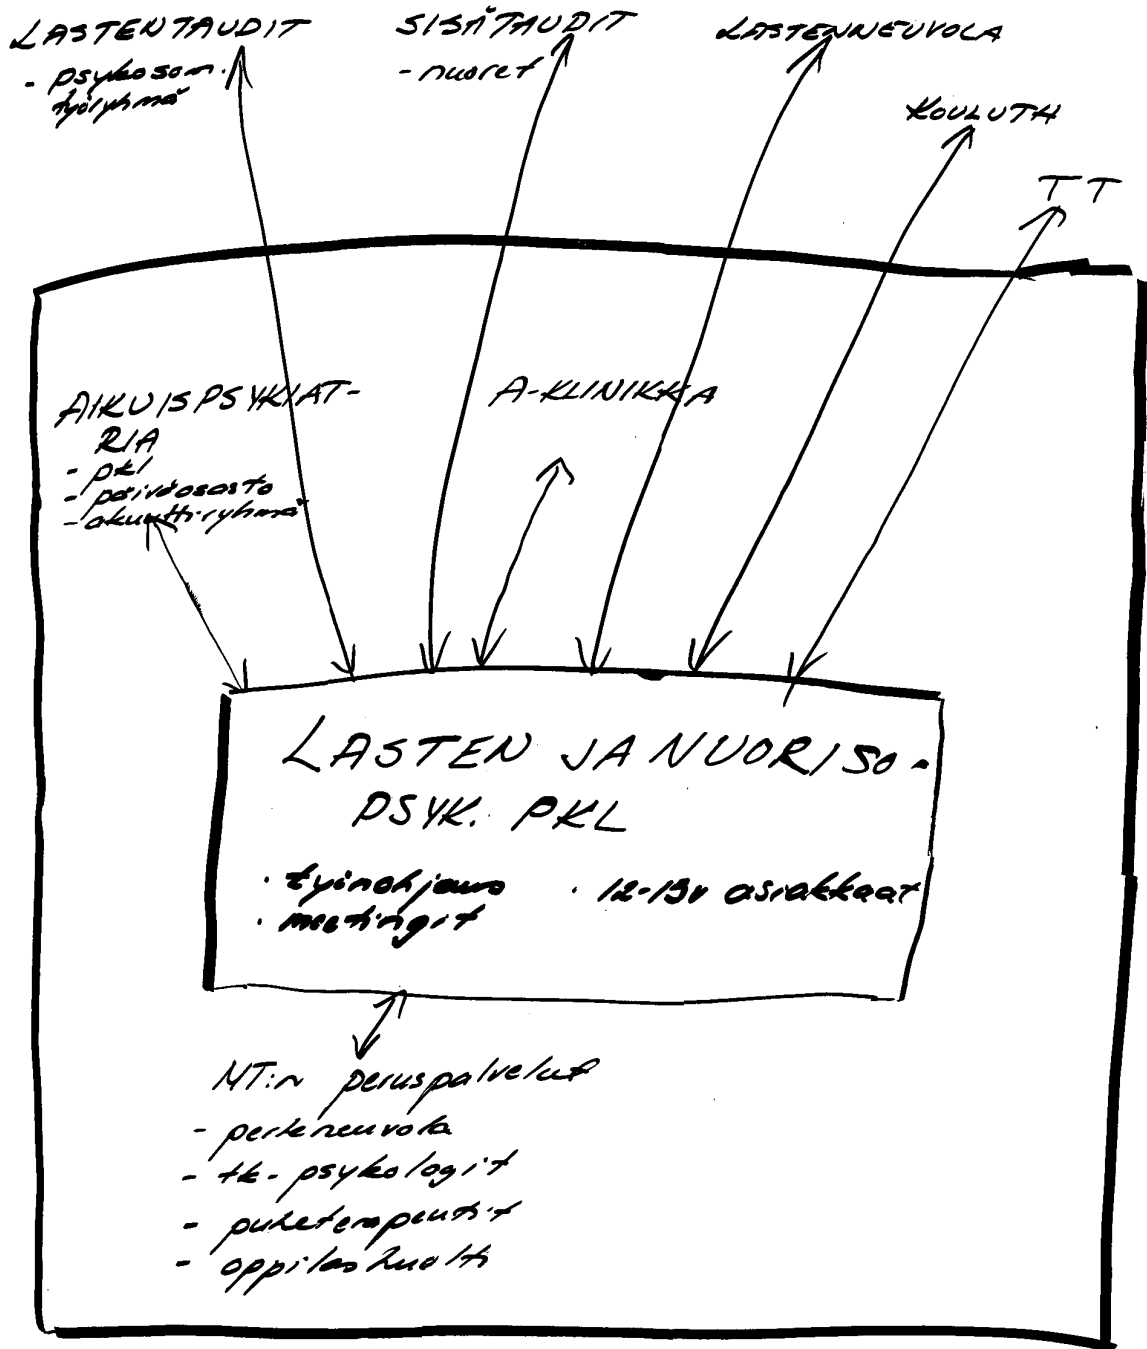 LASTENTAUDIT
- psykosom.
työryhmä
SISÄTAUDIT
- nuoret
LASTENNEUVOLA
KOULUTH
TT
AIKUISPSYKIAT-
RIA
- pkl
- päiväosasto
- akuuttiryhmä
A-KLINIKKA
LASTEN JA NUORISO-
PSYK. PKL
· työnohjaus
· meetingit
· 12-19v asiakkaat
MT:n peruspalvelut
- perheneuvola
- tk-psykologit
- puheterapeutit
- oppilashuolto